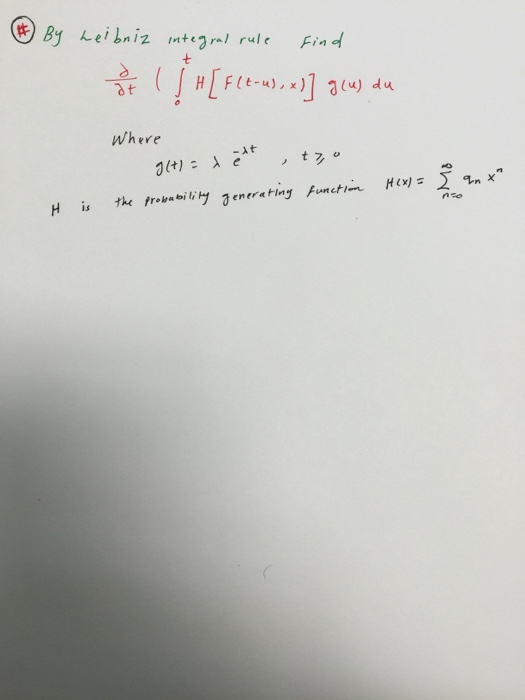 # By Leibniz integral rule Find
∂/∂t ( ∫₀ᵗ H[F(t-u), x)] g(u) du
Where
g(t) = λ e^{-λt} , t ≥ 0
H is the probability generating function H(x) = ∑_{n=0}^{∞} q_n x^n